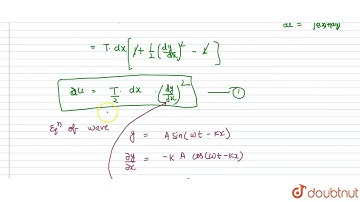 = T.dx [1 + 1/2 (dy/dx)² - 1]
du = T/2 . dx . (dy/dx)² — ①
Eqⁿ of wave y = A sin(ωt - Kx)
∂y/∂x = -K A cos(ωt - Kx)
doubtnut